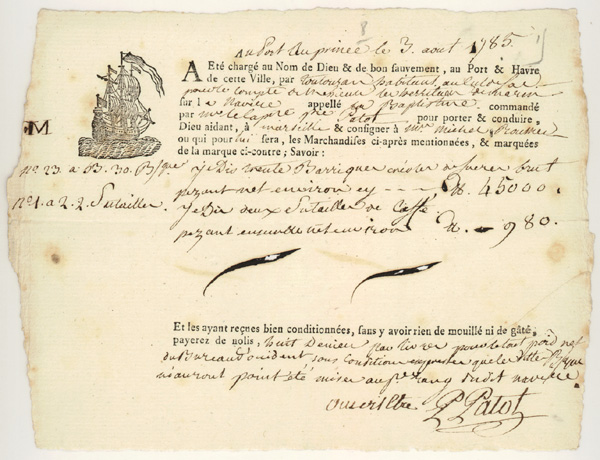 Au Port Au prince le 3. aout 1785.
A Eté chargé au Nom de Dieu & de bon sauvement, au Port & Havre
de cette Ville, par habitant au
pour le Compte de
sur le Navire appellé Le Baptistine commandé
par Mr. le Capne. Patot pour porter & conduire,
Dieu aidant, à marseille & consigner à Mr. michel
ou qui pour lui sera, les Marchandises ci-après mentionnées, & marquées
de la marque ci-contre; Savoir:
M
No. 23. a 30. Bques. Je Dis Barriques de sucre brut
pezant net environ cy --- 45000.
No. 1. a 2. 2. futailles. Je Dis deux futailles de Caffé
pezant ensemble net environ 980.
Et les ayant reçues bien conditionnées, sans y avoir rien de mouillé ni de gâté,
payerez de nolis, huit Deniers par livre pour le tout poid net
du Bureau d'occident sous Condition que les Bques
n'auront point été mises au rang dudit navire.
P Patot